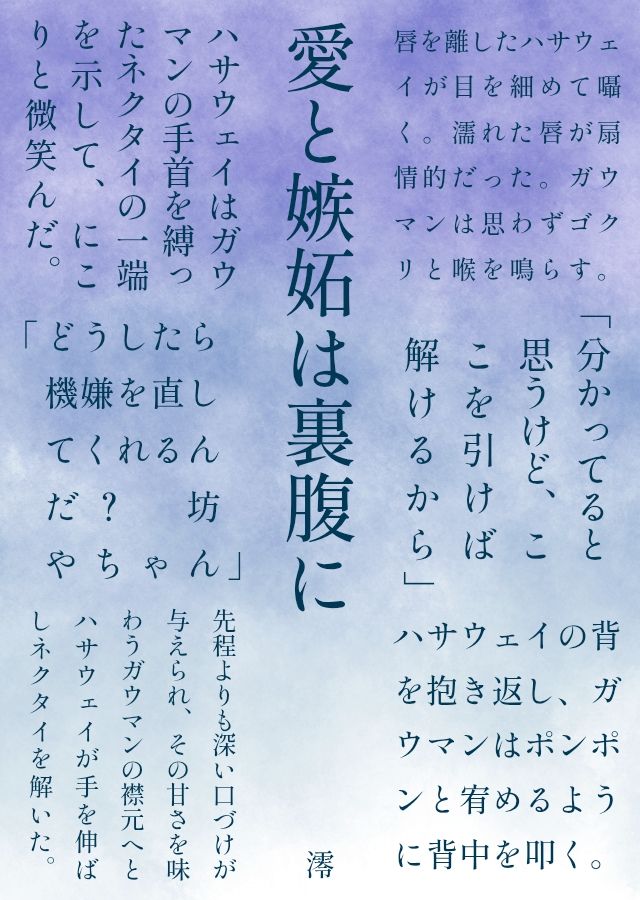 唇を離したハサウェ
イが目を細めて囁
く。濡れた唇が扇
情的だった。ガウ
マンは思わずゴク
リと喉を鳴らす。
「分かってると
思うけど、こ
こを引けば
解けるから」
ハサウェイの背
を抱き返し、ガ
ウマンはポンポ
ンと宥めるよう
に背中を叩く。
愛と嫉妬は裏腹に
澪
ハサウェイはガウ
マンの手首を縛っ
たネクタイの一端
を示して、にこ
りと微笑んだ。
「どうしたら
機嫌を直し
てくれるん
だ？ 坊
やちゃん」
先程よりも深い口づけが
与えられ、その甘さを味
わうガウマンの襟元へと
ハサウェイが手を伸ば
しネクタイを解いた。